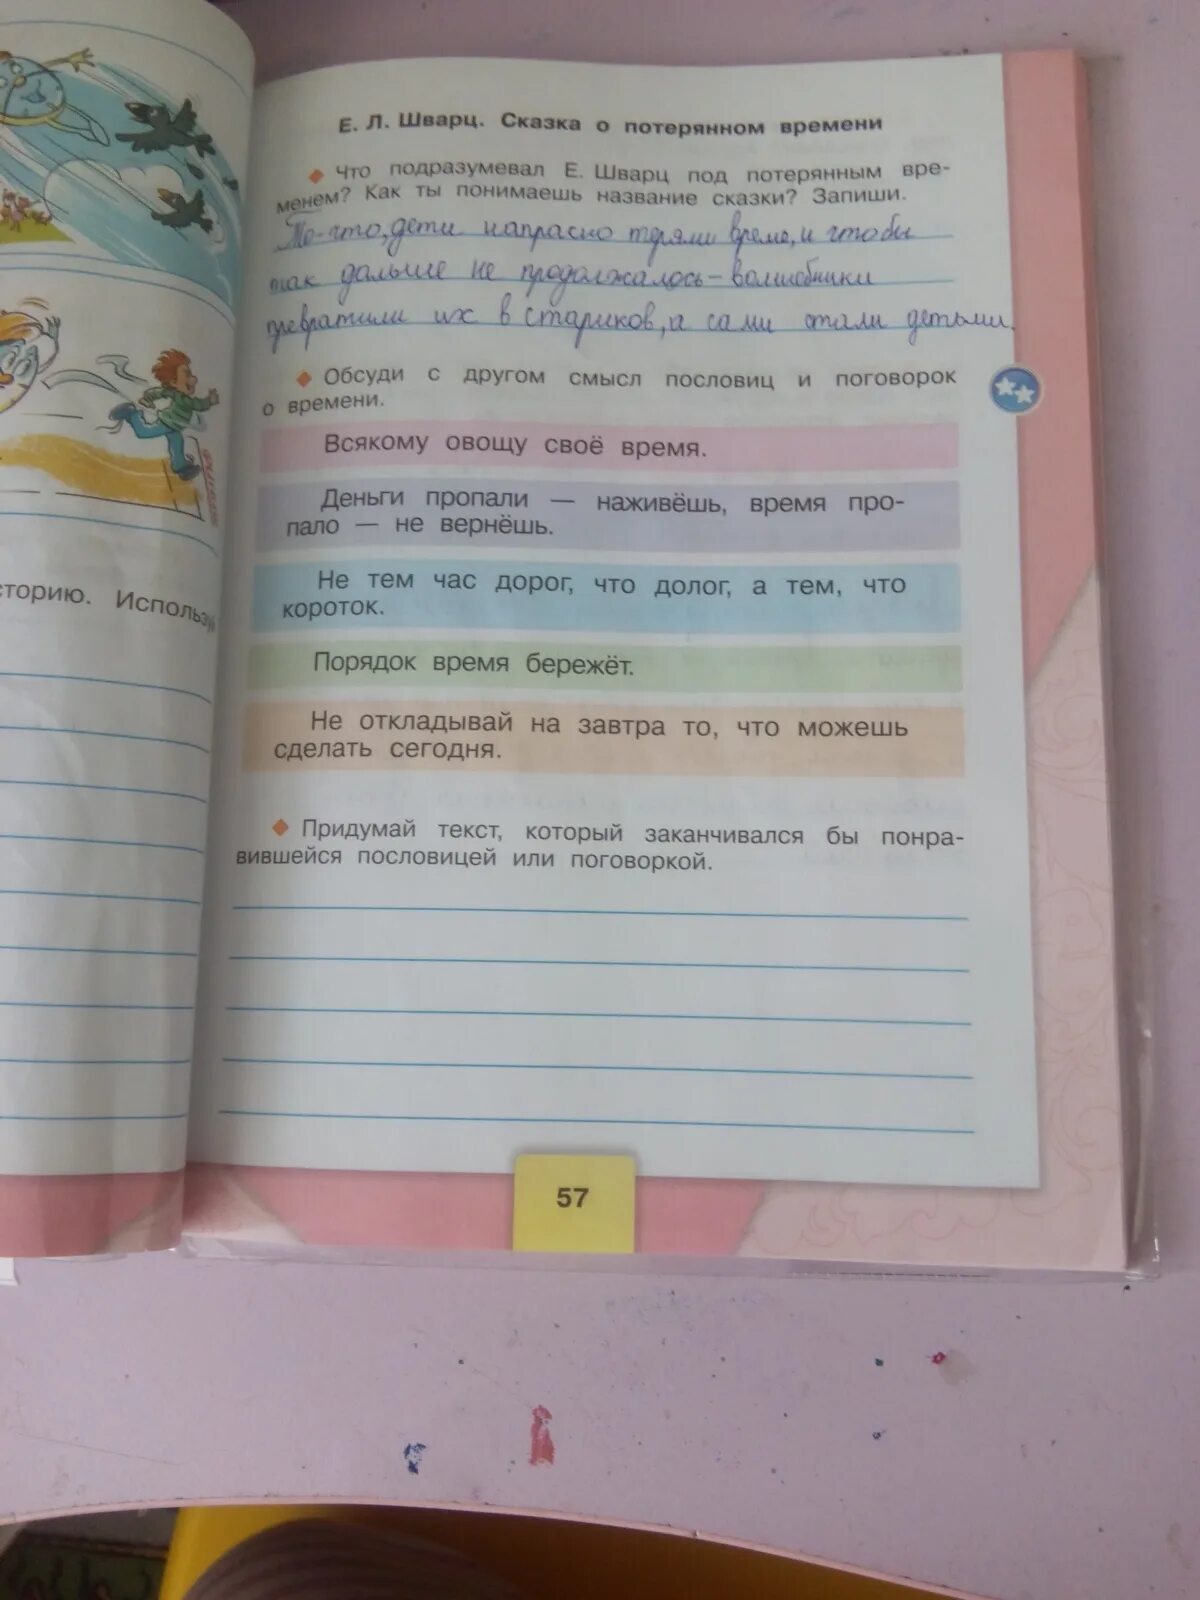 Е. Л. Шварц. Сказка о потерянном времени
Что подразумевал Е. Шварц под потерянным вре-
менем? Как ты понимаешь название сказки? Запиши.
То-что, дети напрасно теряли время, и чтобы
так дальше не продолжалось - волшебники
превратили их в стариков, а сами стали детьми.
Обсуди с другом смысл пословиц и поговорок
о времени.
Всякому овощу своё время.
Деньги пропали — наживёшь, время про-
пало — не вернёшь.
Не тем час дорог, что долог, а тем, что
короток.
Порядок время бережёт.
Не откладывай на завтра то, что можешь
сделать сегодня.
Придумай текст, который заканчивался бы понра-
вившейся пословицей или поговоркой.
57
сторию. Используй